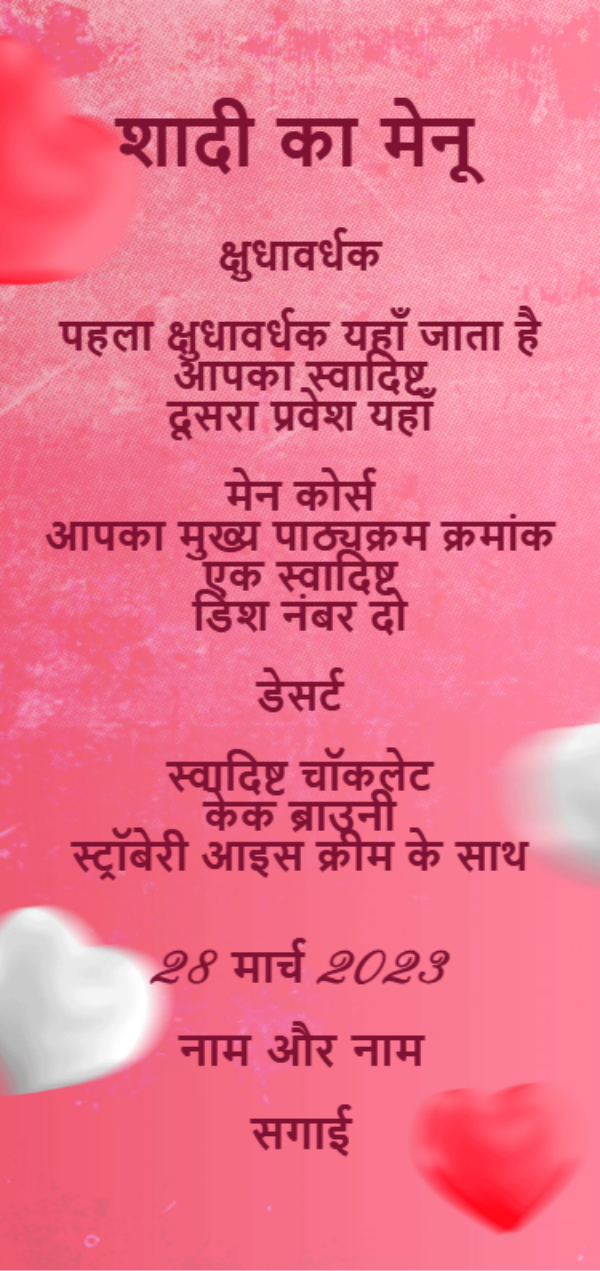 शादी का मेनू
क्षुधावर्धक
पहला क्षुधावर्धक यहाँ जाता है
आपका स्वादिष्ट
दूसरा प्रवेश यहाँ
मेन कोर्स
आपका मुख्य पाठ्यक्रम क्रमांक
एक स्वादिष्ट
डिश नंबर दो
डेसर्ट
स्वादिष्ट चॉकलेट
केक ब्राउनी
स्ट्रॉबेरी आइस क्रीम के साथ
28 मार्च 2023
नाम और नाम
सगाई